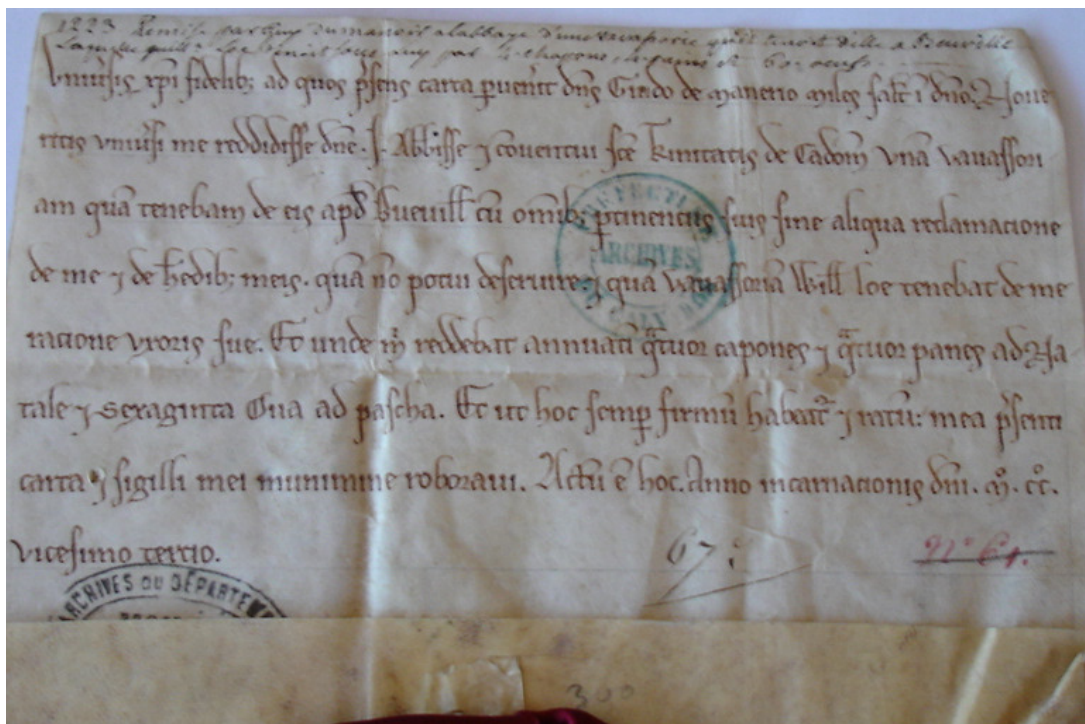 1223 Remise par Guy du manoir a l'abbaye d'une vavaporie qu'il tenoit d'elle a Beuville
Laquelle Loe tenoit sous luy par 4 chapons 4 pains et 60 oeufs.
Univ̾sis xp̄i fidelib; ad quos p̾sens carta p̱uen̾it dn̄s Guido de Manerio miles salt̄ ī dn̄o. Noue
ritis uniu̾si me reddidisse dn̄e .J. Abb̄isse ⁊ cōuentui sc̄e Trinitatis de Cadom̄ unā uauassori
am quā tenebam de eis apd̄ Bueuill̄ cū om̄ib; p̱tinentiis suis sine aliqua reclamacione
de me ⁊ de h̄edib; meis. quā nō potui deseruire. ⁊ quā uauassoriā Will̄ loe tenebat de me
racione uxoris sue. Et unde m̄ reddebat annuatī qᵃtuor capones ⁊ qᵃtuor panes ad Na
tale ⁊ sexaginta Oua ad pascha. Et ut hoc semp̱ firmū habeat̾ ⁊ ratū: mea p̾senti
carta ⁊ sigilli mei munimine roboraui. Actū ē hoc. Anno incarnacionis dn̄i. M̊. cc̊.
vicesimo tercio.
67:
N° 61.
PREFECTURE
ARCHIVES
DU CALVADOS
ARCHIVES DU DÉPARTEME
300